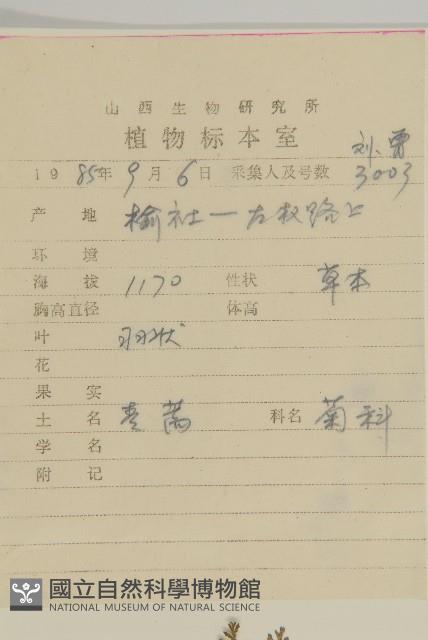 山西生物研究所
植物标本室
刘、曹
1985年9月6日 采集人及号数 3003
产地 榆社—左权路上
环境
海拔 1170 性状 草本
胸高直径 体高
叶 羽状
花
果实
土名 青蒿 科名 菊科
学名
附记
國立自然科學博物館
NATIONAL MUSEUM OF NATURAL SCIENCE